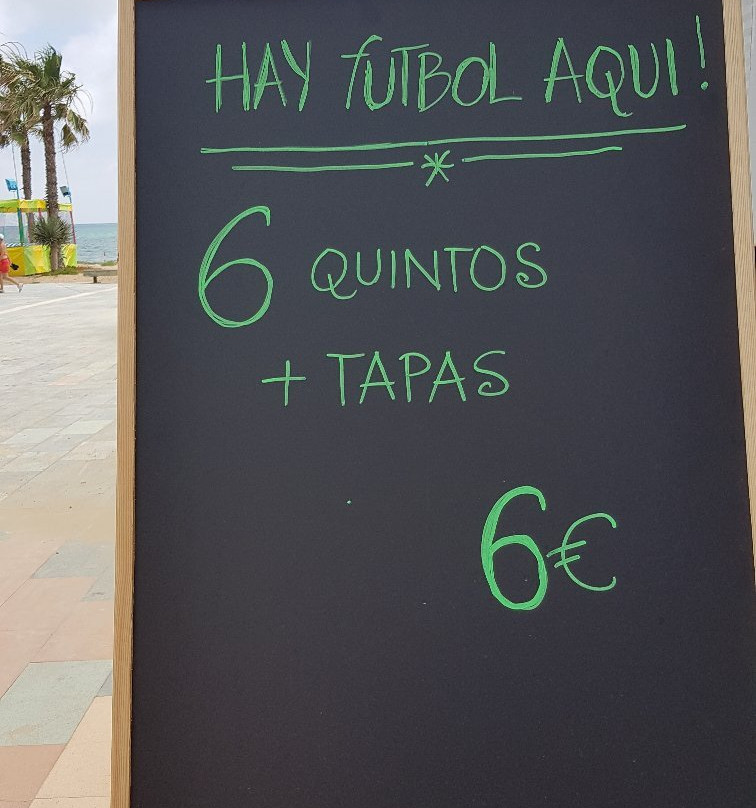 HAY FUTBOL AQUI!
6 QUINTOS
+ TAPAS
6€